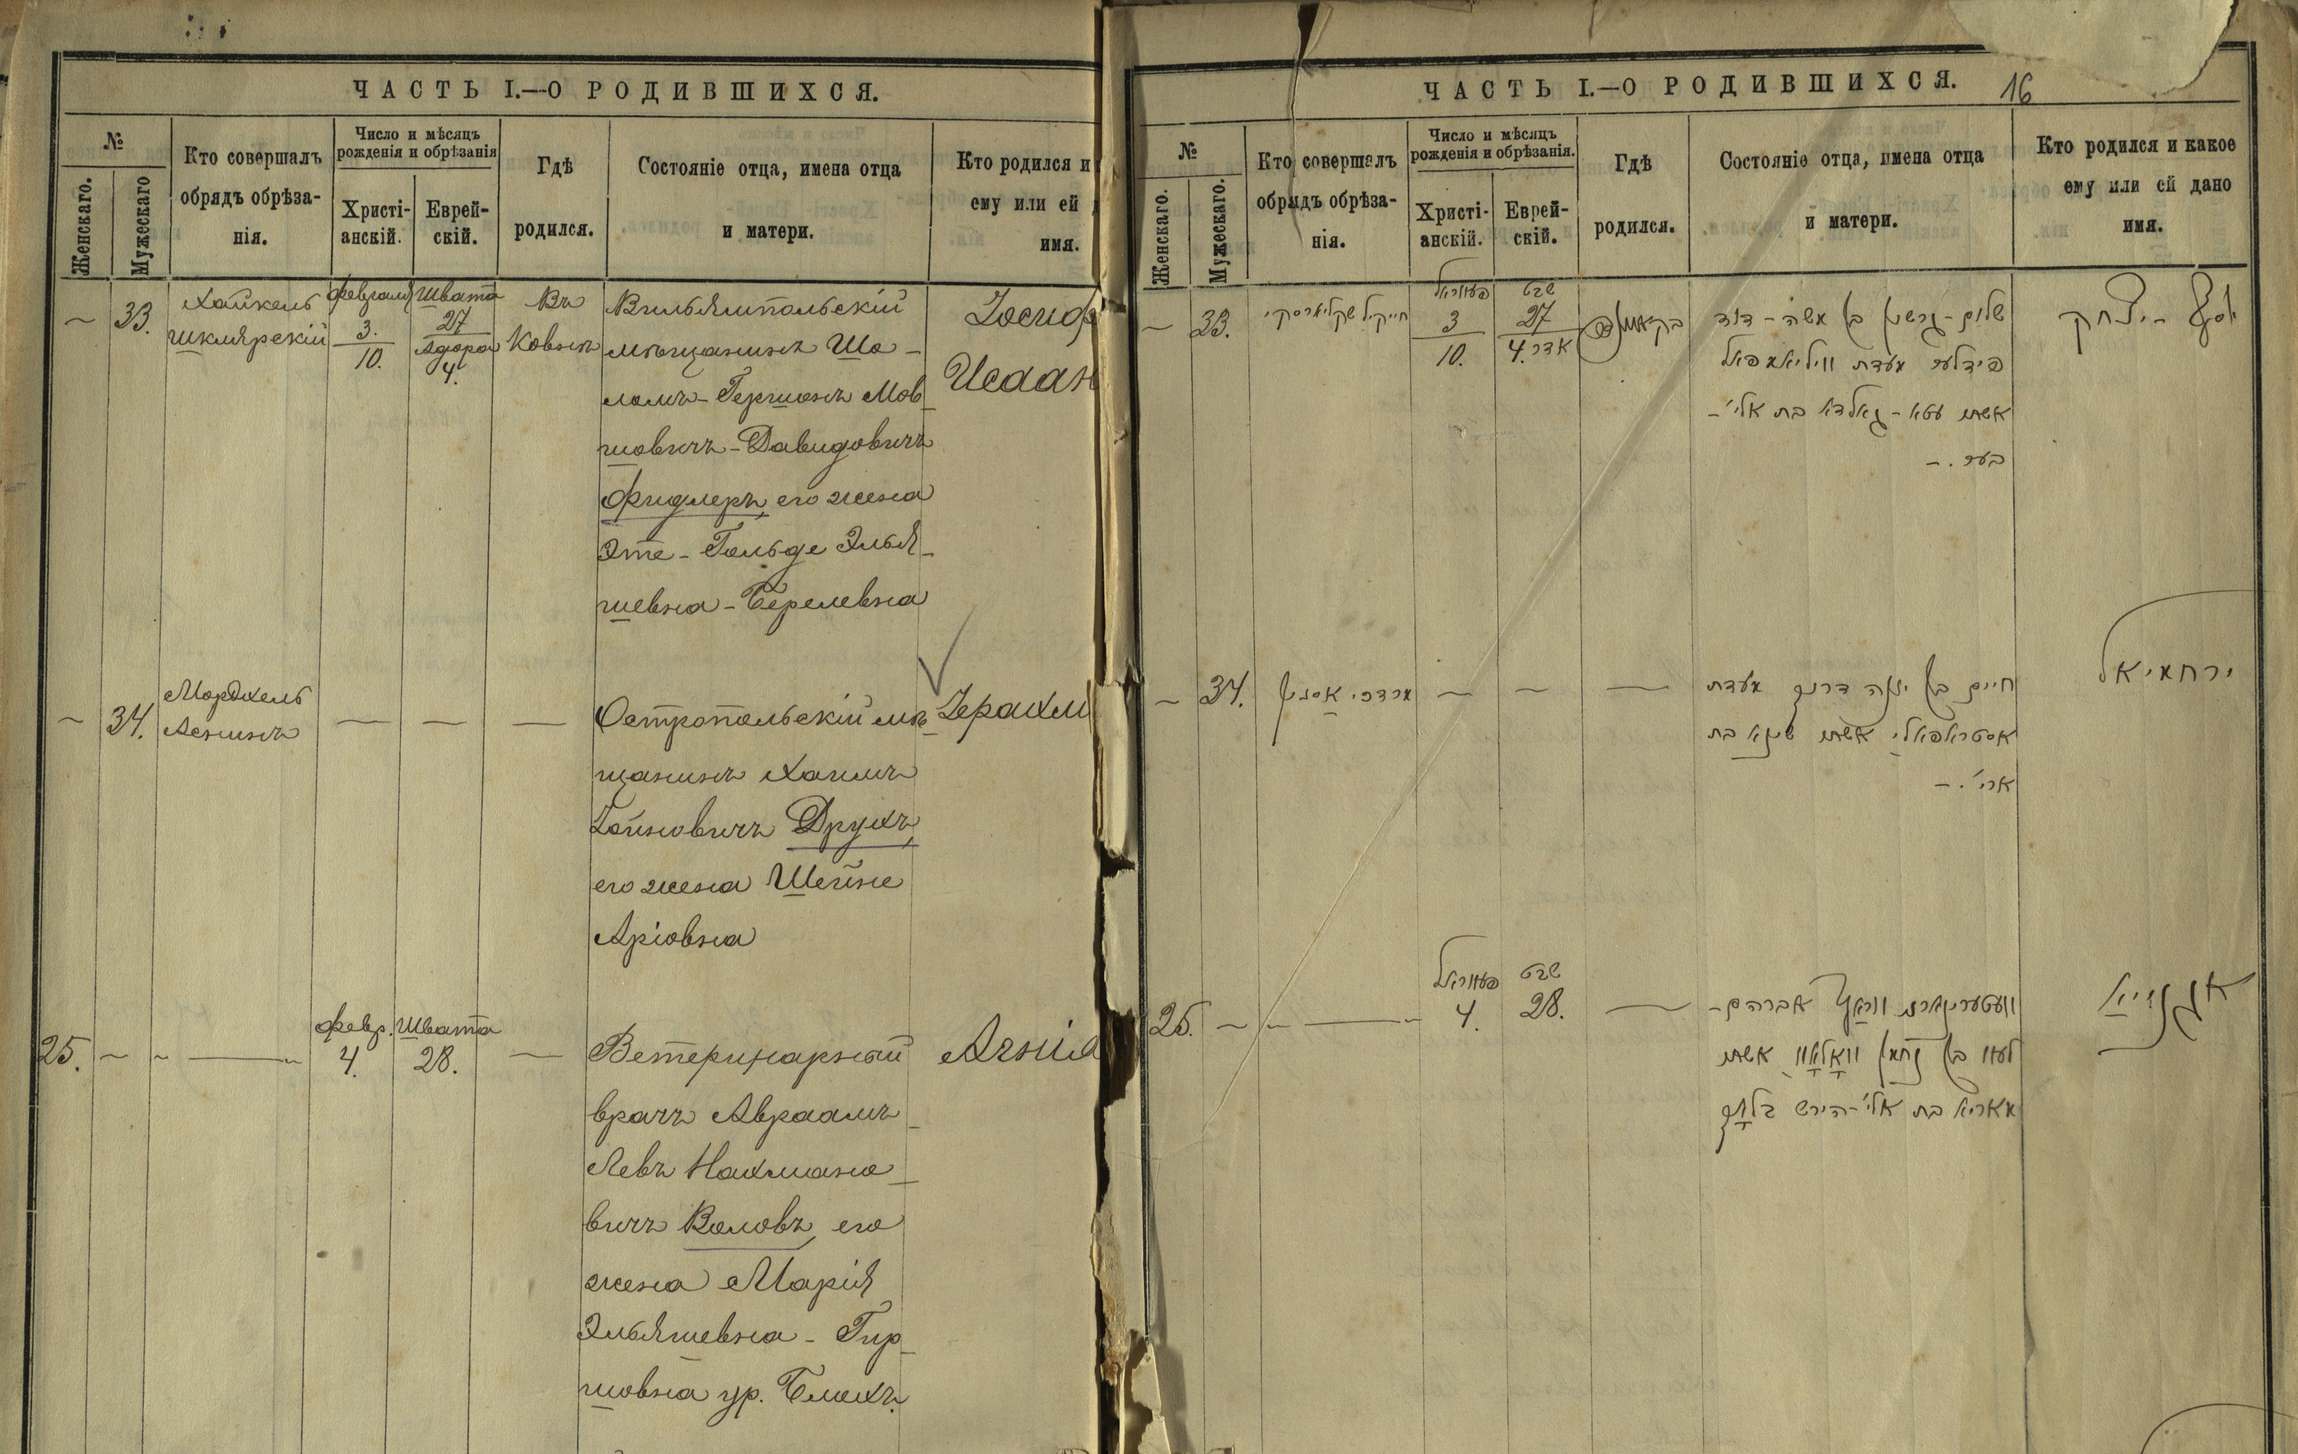 ЧАСТЬ I.—О РОДИВШИХСЯ.
№
Женскаго.
Мужескаго
Кто совершалъ
обрядъ обрѣза-
нія.
Число и мѣсяцъ
рожденія и обрѣзанія
Христі-
анскій.
Еврей-
скій.
Гдѣ
родился.
Состояніе отца, имена отца
и матери.
Кто родился и
ему или ей
имя.
33.
Хайкель
Шклярскій
Февраля
3.
10.
Швата
27
Адора
4.
Въ
Ковнѣ
Вильямпольскій
мѣщанинъ Шо-
ломъ-Гершонъ Мов-
шовичъ-Давидовичъ
Фидлеръ, его жена
Эте-Гольде Элья-
шевна-Берелевна
Іосиф
Исаак
34.
Мордхель
Аснинъ
Остропольскій мѣ-
щанинъ Хаимъ
Іойновичъ Друхъ,
его жена Шейне
Аріовна
Іерахм
25.
Февр.
4.
Швата
28.
Ветеринарный
врачъ Авраамъ-
Левъ Нахмано-
вичъ Воловъ, его
жена Марія
Эльяшевна-Гир-
шовна ур. Блохъ.
Агнія
ЧАСТЬ I.—О РОДИВШИХСЯ.
16
№
Женскаго.
Мужескаго.
Кто совершалъ
обрядъ обрѣза-
нія.
Число и мѣсяцъ
рожденія и обрѣзанія.
Христі-
анскій.
Еврей-
скій.
Гдѣ
родился.
Состояніе отца, имена отца
и матери.
Кто родился и какое
ему или ей дано
имя.
33.
חייקיל שקליארסקי
פעווראל
3
10.
שבט
27
אדר 4.
שלום-גרשון בן משה-דוד
פידלער מעדת וויליאמפאל
אשתו עטא-גאלדא בת אלי'-
בער.-
יוסף-יצחק
34.
מרדכי אסנין
חיים בן יונה דרוך מעדת
אסטראפאלי אשתו שיינא בת
ארי'.-
ירחמיאל
25.
פעווראל
4.
שבט
28.
וועטערינארנו ווראץ אברהם-
לעוו בן נחמן וואלאוו אשתו
מאריא בת אלי'-הירש בלאך
אגנייא